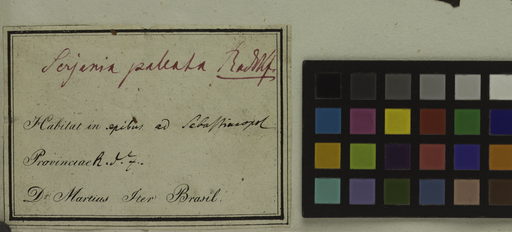 Serjania paleata Radlkf
Habitat in sepibus ad Sebastianopol
Provinciae R. d. J.
Dr. Martius Iter Brasil.